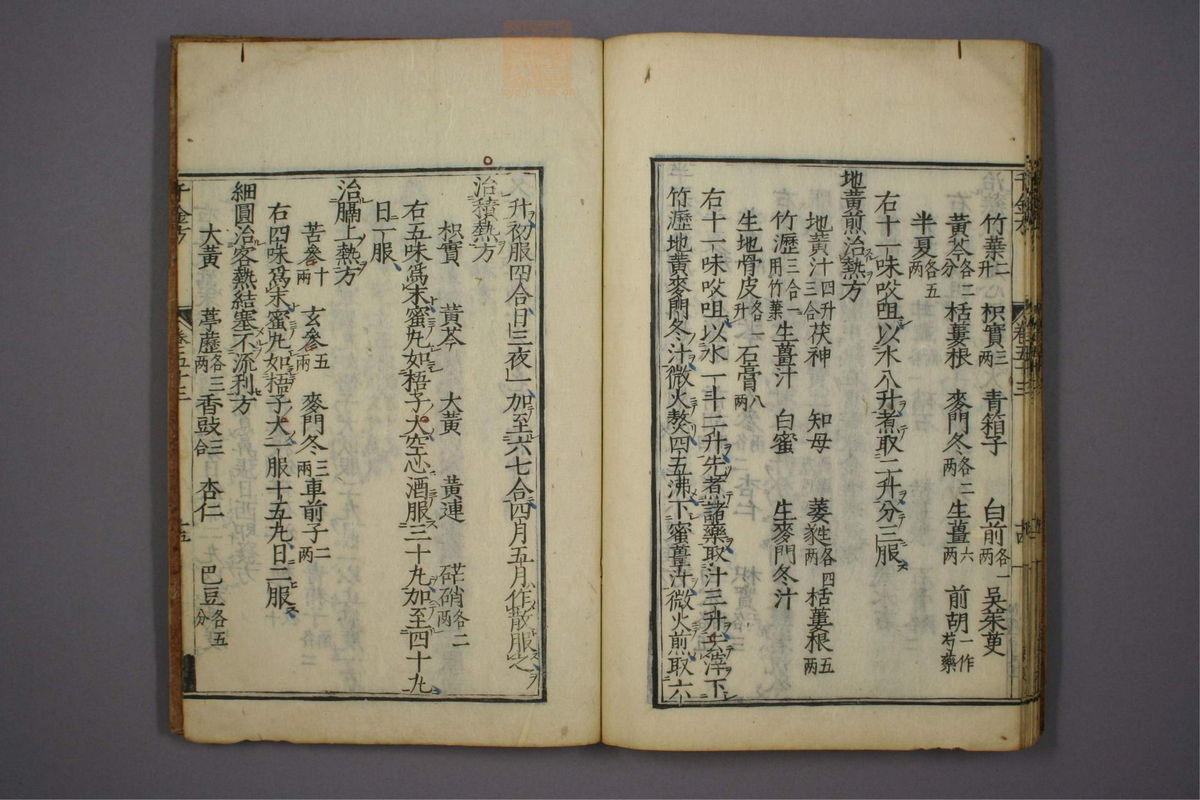 竹葉二升 枳實三兩 青箱子 白前各一兩 吳茱萸
黃芩各二分 栝蔞根 麥門冬各二兩 生薑六兩 前胡一作芍藥
半夏各五兩
右十一味㕮咀以水八升煮取二升分三服
地黃煎治熱方
地黃汁四升三合 茯神 知母 萎蕤生各四兩 栝蔞根五兩
竹瀝三合一用竹葉 生薑汁 白蜜 生麥門冬汁
生地骨皮各一升 石膏八兩
右十一味㕮咀以水一斗二升先煮諸藥取汁三升去滓下
竹瀝地黃麥門冬汁微火熬四五沸下蜜薑汁微火煎取六
升初服四合日三夜一加至六七合四月五月作散服之
治積熱方
枳實 黃芩 大黃 黃連 硭硝各二兩
右五味爲末蜜丸如梧子大空心酒服三十九加至四十九
日一服
治膈上熱方
苦參十兩 玄參五兩 麥門冬三兩 車前子二兩
右四味爲末蜜丸如梧子大一服十五丸日二服
細圓治客熱結塞不流利方
大黃 葶藶各三兩 香豉三合 杏仁 巴豆各五分
千金方
卷五十三